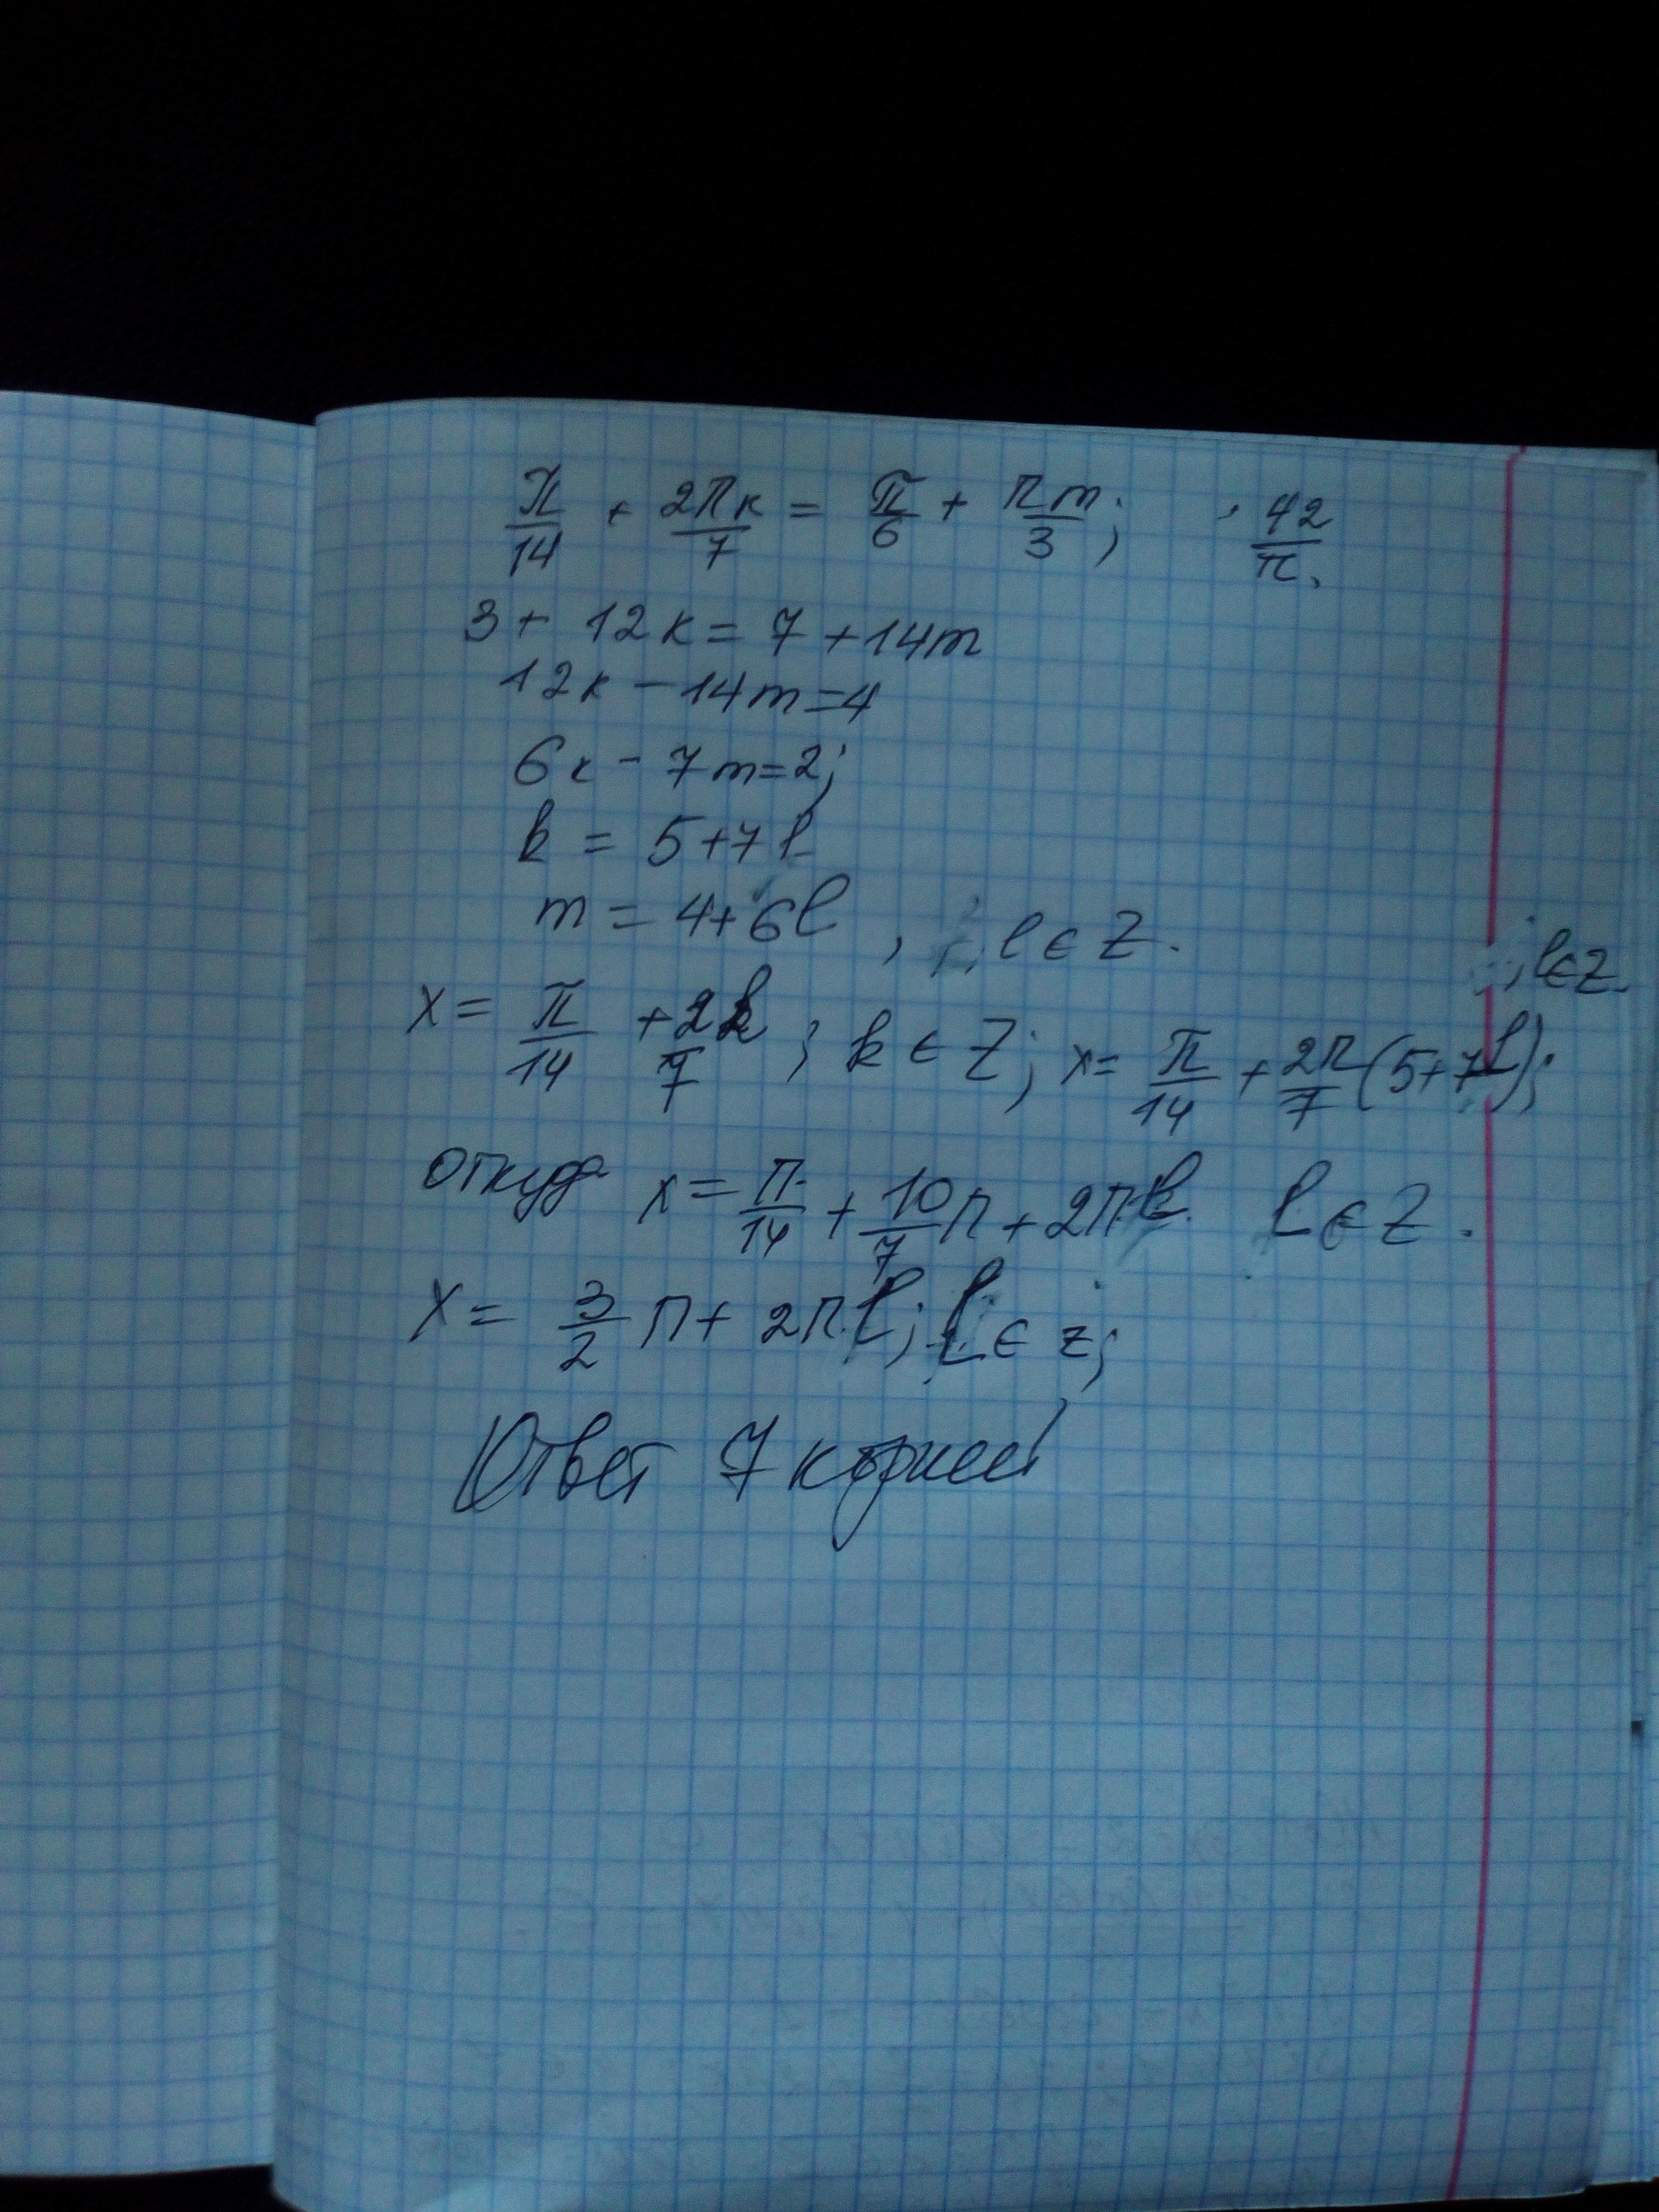 π/14 + 2πк/7 = π/6 + πm/3; · 42/π,
3 + 12к = 7 + 14m
12к - 14m = 4
6к - 7m = 2;
k = 5 + 7l
m = 4 + 6l , l ∈ Z.
x = π/14 + 2k/7 ; k ∈ Z; x = π/14 + 2π/7 (5 + 7l); ; l ∈ Z.
откуд x = π/14 + 10/7 π + 2πl l ∈ Z.
x = 3/2 π + 2πl; l ∈ z;
Ответ 7 корней